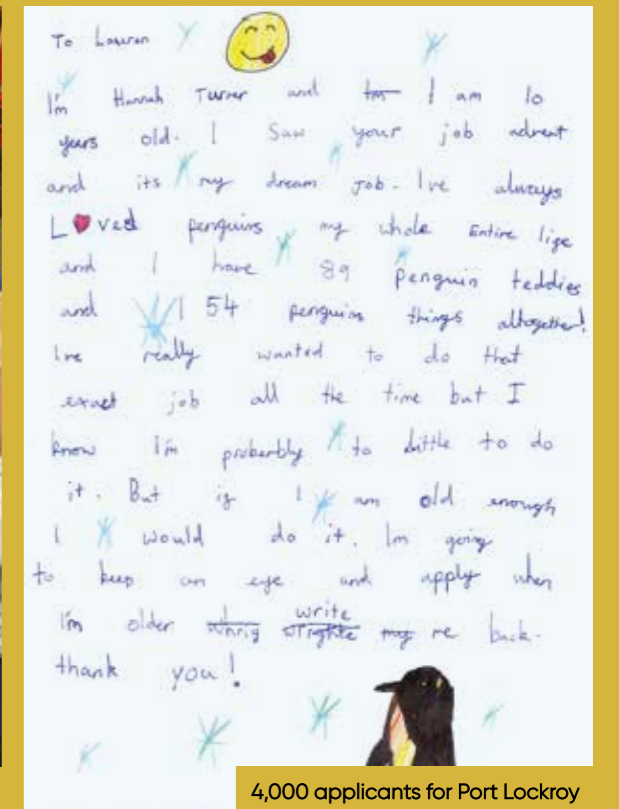 To Lauren
I'm Hannah Turner and I'm I am 10
years old. I Saw your job advert
and its my dream job. Ive always
Loved penguins my whole Entire life
and I have 89 penguin teddies
and 154 penguin things altogether!
Ive really wanted to do that
exact job all the time but I
know I'm proberbly to little to do
it. But if I am old enough
I would do it. Im going
to keep an eye and apply when
I'm older write me back.
thank you!
4,000 applicants for Port Lockroy